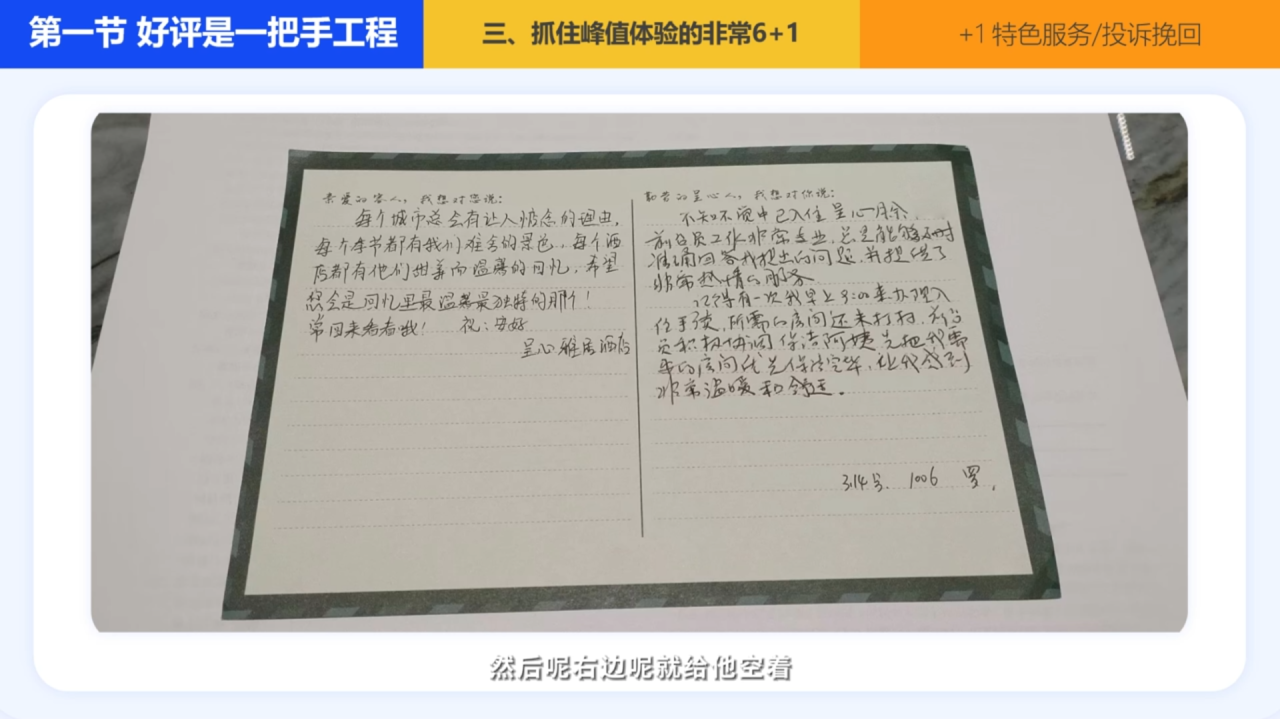 第一节 好评是一把手工程
三、抓住峰值体验的非常6+1
+1 特色服务/投诉挽回
亲爱的客人，我想对您说：
每个城市总会有让人惦念的理由，
每个季节都有我们难舍的景色，每个酒
店都有他们甜美而温馨的回忆，希望
您会是回忆里最温馨最独特的那个！
常回来看看我！ 祝：安好
呈心雅居酒店
勤劳的呈心人，我想对你说：
不知不觉中已入住呈心月余，
前台员工作非常专业，总是能够及时
准确回答我提出的问题，并提供了
非常热情的服务
记得有一次我早上9:00来办理入
住手续，所需的房间还未打扫，前台
员积极协调保洁阿姨先把我需
要的房间优先保洁完毕，让我感到
非常温暖和舒适。
3.14号. 1006 罗.
然后呢右边呢就给他空着